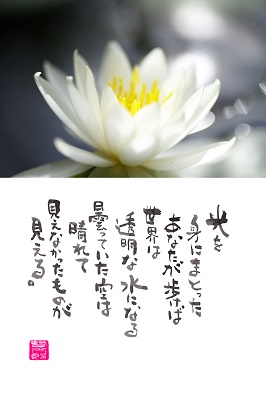 光を
身にまとった
あなたが歩けば
世界は
透明な水になる
曇っていた空は
晴れて
見えなかったものが
見える。